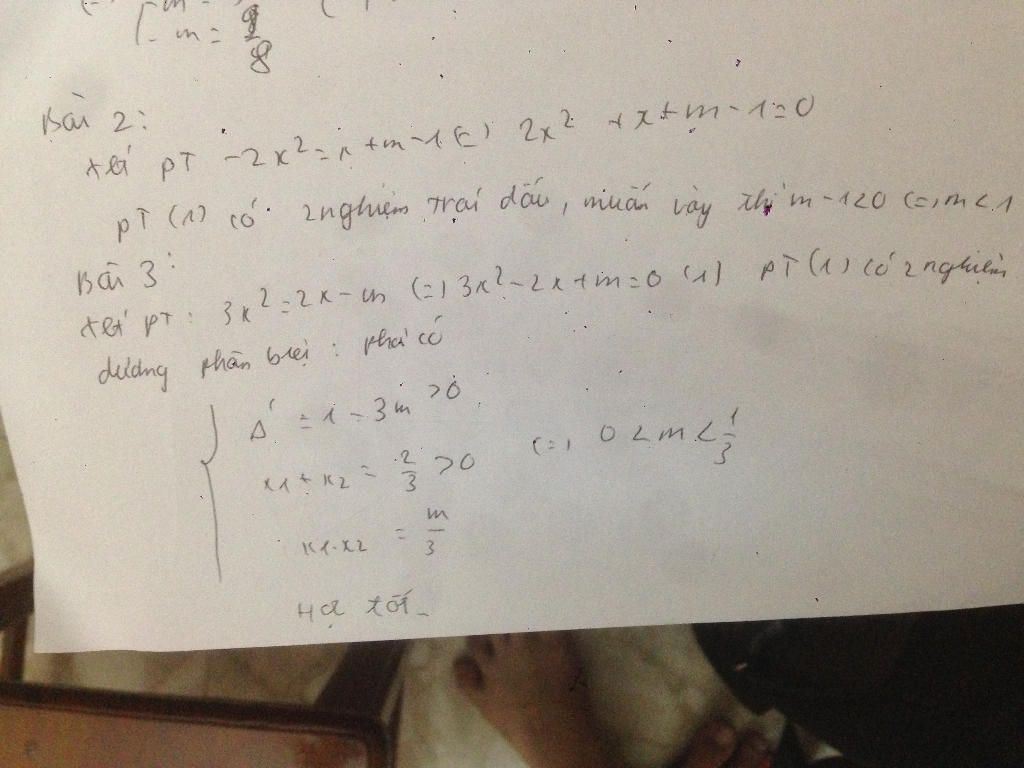 m =
m = 9/8
Bài 2:
xét PT -2x² = x + m - 1 (=) 2x² + x + m - 1 = 0
PT (1) có 2 nghiệm trái dấu, muốn vậy thì m - 1 < 0 (=) m < 1
Bài 3:
xét PT: 3x² = 2x - m (=) 3x² - 2x + m = 0 (1) PT (1) có 2 nghiệm
dương phân biệt: phải có
Δ' = 1 - 3m > 0
x1 + x2 = 2/3 > 0 (=) 0 < m < 1/3
x1.x2 = m/3
Học tốt